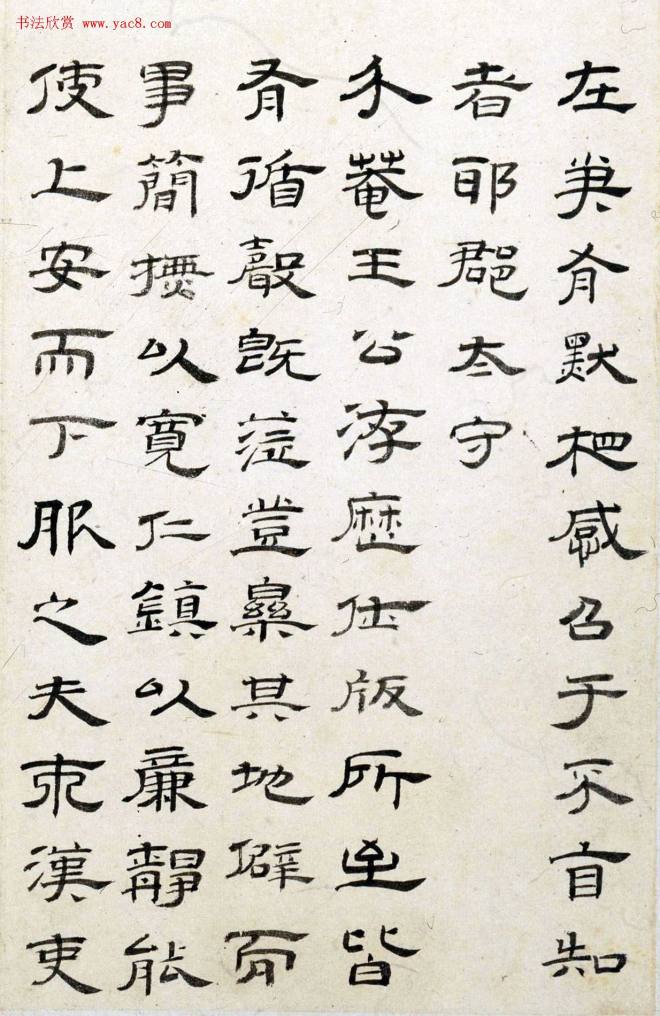 书法欣赏 www.yac8.com
在有默相感召于不自知
者耶郡太守
禾菴王公洊歷仕版所至皆
有循聲既蒞登其地僻而
事簡撫以寬仁鎮以廉靜能
使上安而下服之夫漢吏